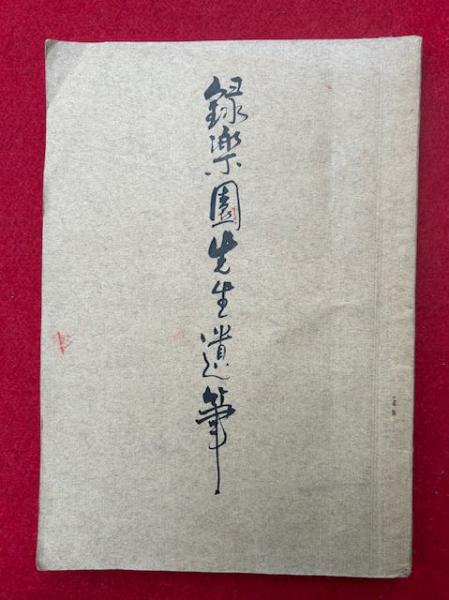 録樂園先生遺筆